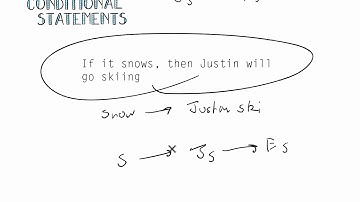 CONDITIONAL
STATEMENTS
If it snows, then Justin will
go skiing
snow → Justin ski
S → Js → Es